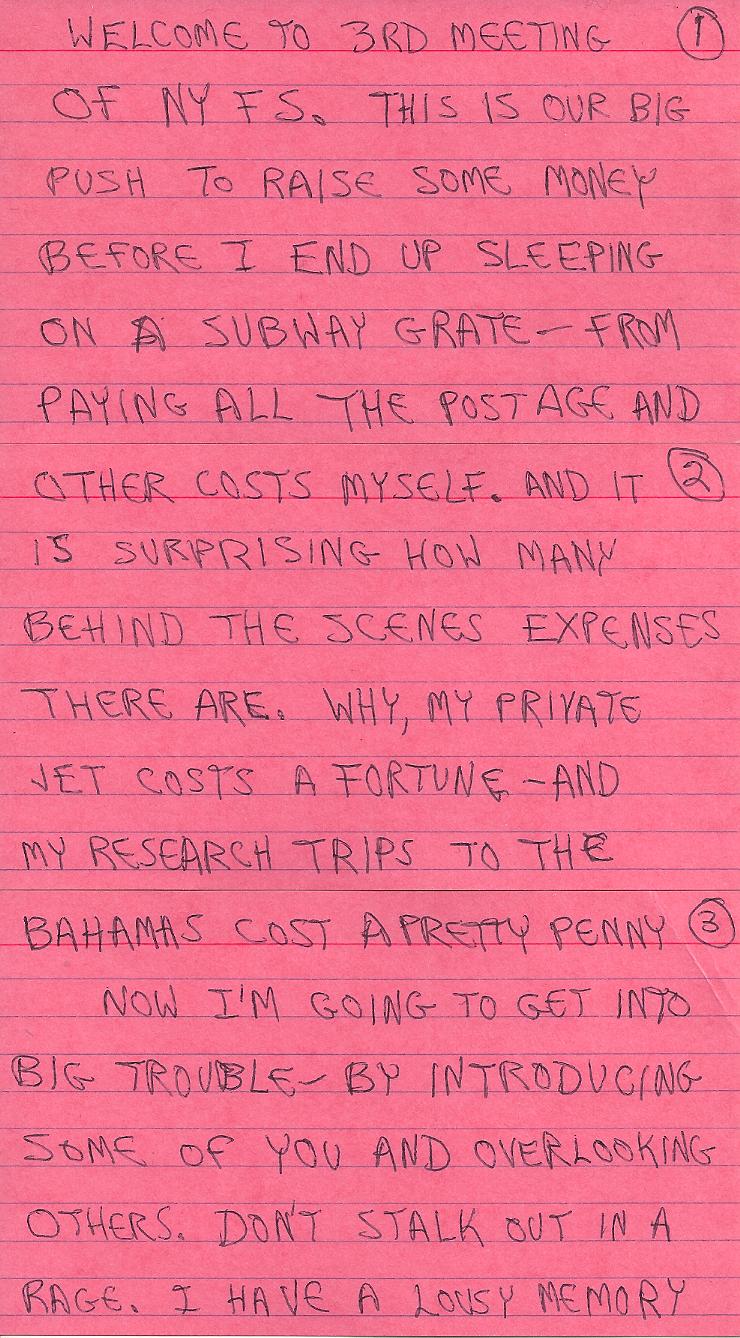 WELCOME TO 3RD MEETING ①
OF NY F S. THIS IS OUR BIG
PUSH TO RAISE SOME MONEY
BEFORE I END UP SLEEPING
ON A SUBWAY GRATE — FROM
PAYING ALL THE POSTAGE AND
OTHER COSTS MYSELF. AND IT ②
IS SURPRISING HOW MANY
BEHIND THE SCENES EXPENSES
THERE ARE. WHY, MY PRIVATE
JET COSTS A FORTUNE - AND
MY RESEARCH TRIPS TO THE
BAHAMAS COST A PRETTY PENNY ③
NOW I'M GOING TO GET INTO
BIG TROUBLE - BY INTRODUCING
SOME OF YOU AND OVERLOOKING
OTHERS. DON'T STALK OUT IN A
RAGE. I HAVE A LOUSY MEMORY